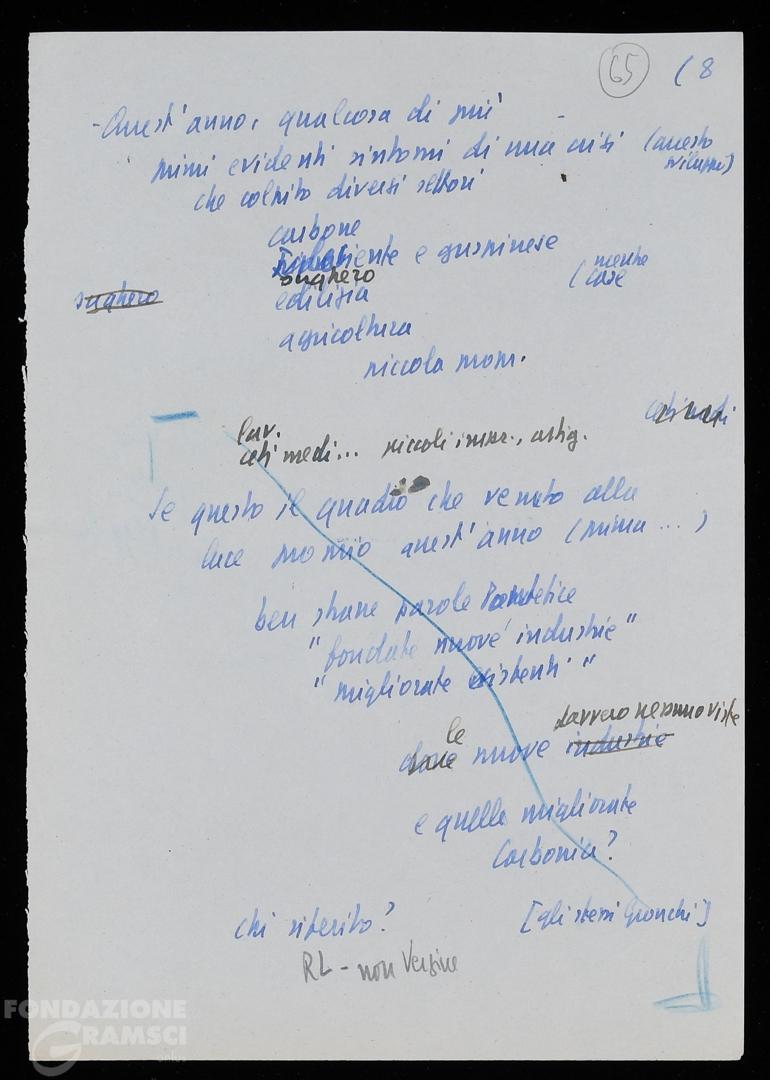 65 (8
- Quest'anno, qualcosa di più -
primi evidenti sintomi di una crisi (questo sviluppo)
che colpito diversi settori
carbone
e guspinese
sughero
sughero
(anche case
edilizia
agricoltura
piccola
ceti medi
lav.
ceti medi... piccoli impr., artig.
Se questo il quadro che venuto alla
luce proprio quest'anno (prima ... )
ben strane parole
"fondate nuove industrie"
"migliorate esistenti"
davvero nessuno viste
le
dove nuove industrie
e quelle migliorate
Carbonia?
chi riferito? [gli stessi Gronchi]
RL - non
FONDAZIONE
GRAMSCI
onlus